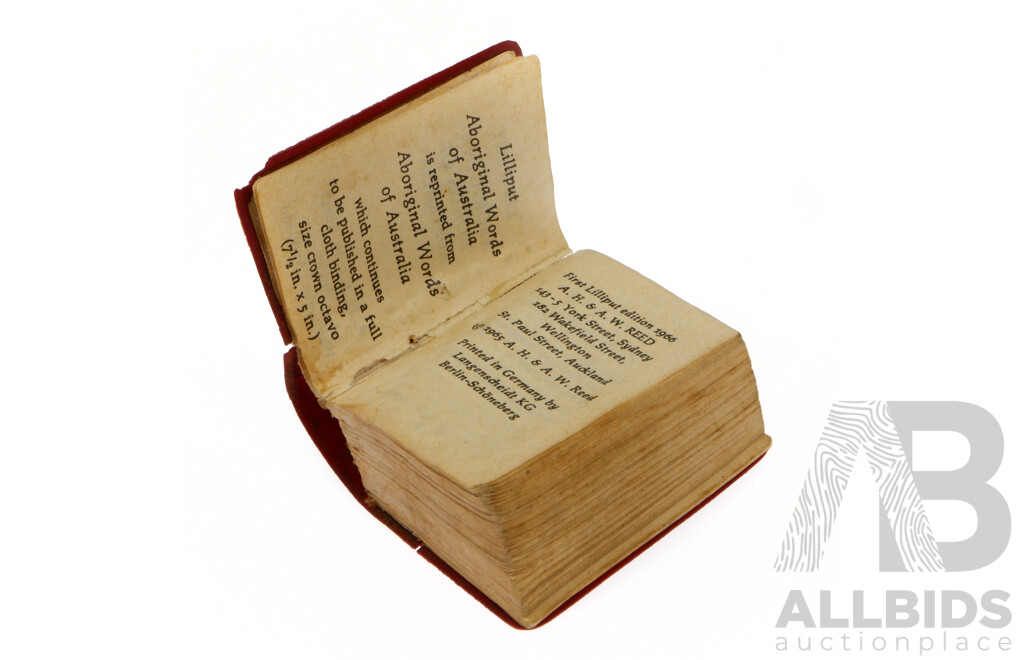 Lilliput
Aboriginal Words
of Australia
is reprinted from
Aboriginal Words
of Australia
which continues
to be published in a full
cloth binding,
size crown octavo
(7½ in. x 5 in.)
First Lilliput edition 1966
A. H. & A. W. REED
143-5 York Street, Sydney
182 Wakefield Street,
Wellington
St. Paul Street, Auckland
© 1965 A. H. & A. W. Reed
Printed in Germany by
Langenscheidt KG
Berlin-Schöneberg
AB
ALLBIDS
auctionplace